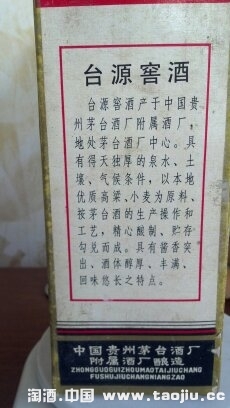 台源窖酒
台源窖酒产于中国贵
州茅台酒厂附属酒厂,
地处茅台酒厂中心。具
有得天独厚的泉水、土
壤、气候条件,以本地
优质高粱、小麦为原料、
按茅台酒的生产操作和
工艺,精心酿制、贮存
勾兑而成。具有酱香突
出、酒体醇厚、丰满、
回味悠长之特点。
中国贵州茅台酒厂
附属酒厂酿造
ZHONGGUOGUIZHOUMAOTAIJIUCHANG
FUSHUJIUCHANGNIANGZAO
淘酒.中国 www.taojiu.cc